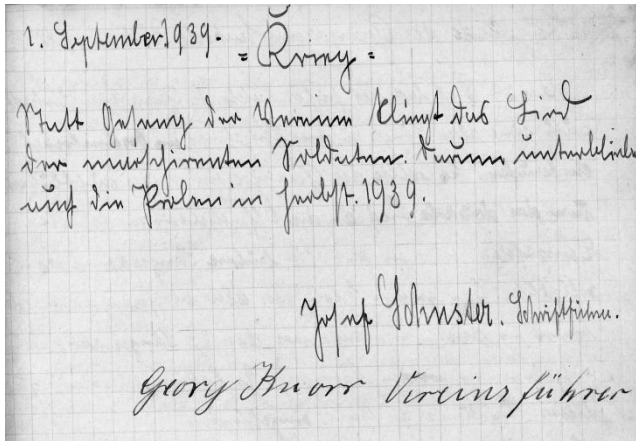 1. September 1939.
= Krieg =
Statt Gesang der Vereine klingt das Lied
der marschirenten Soldaten. Darum unterblieben
auch die Proben in Herbst. 1939.
Josef Schuster. Schriftführer.
Georg Knorr Vereinsführer